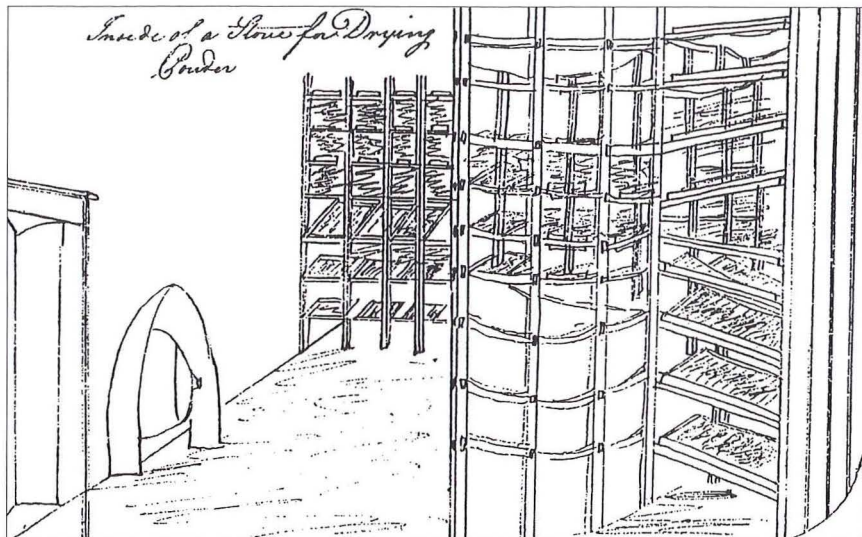 Inside of a Stove for Drying
Powder